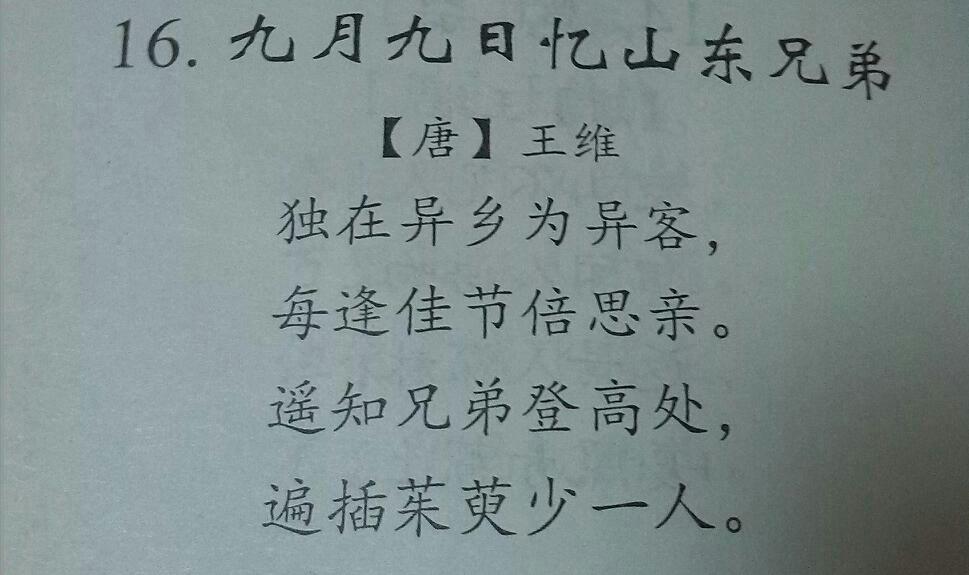 16. 九月九日忆山东兄弟
【唐】王维
独在异乡为异客,
每逢佳节倍思亲。
遥知兄弟登高处,
遍插茱萸少一人。